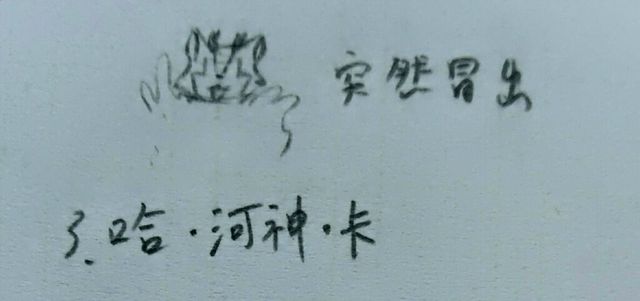 突然冒出
3.哈·河神·卡